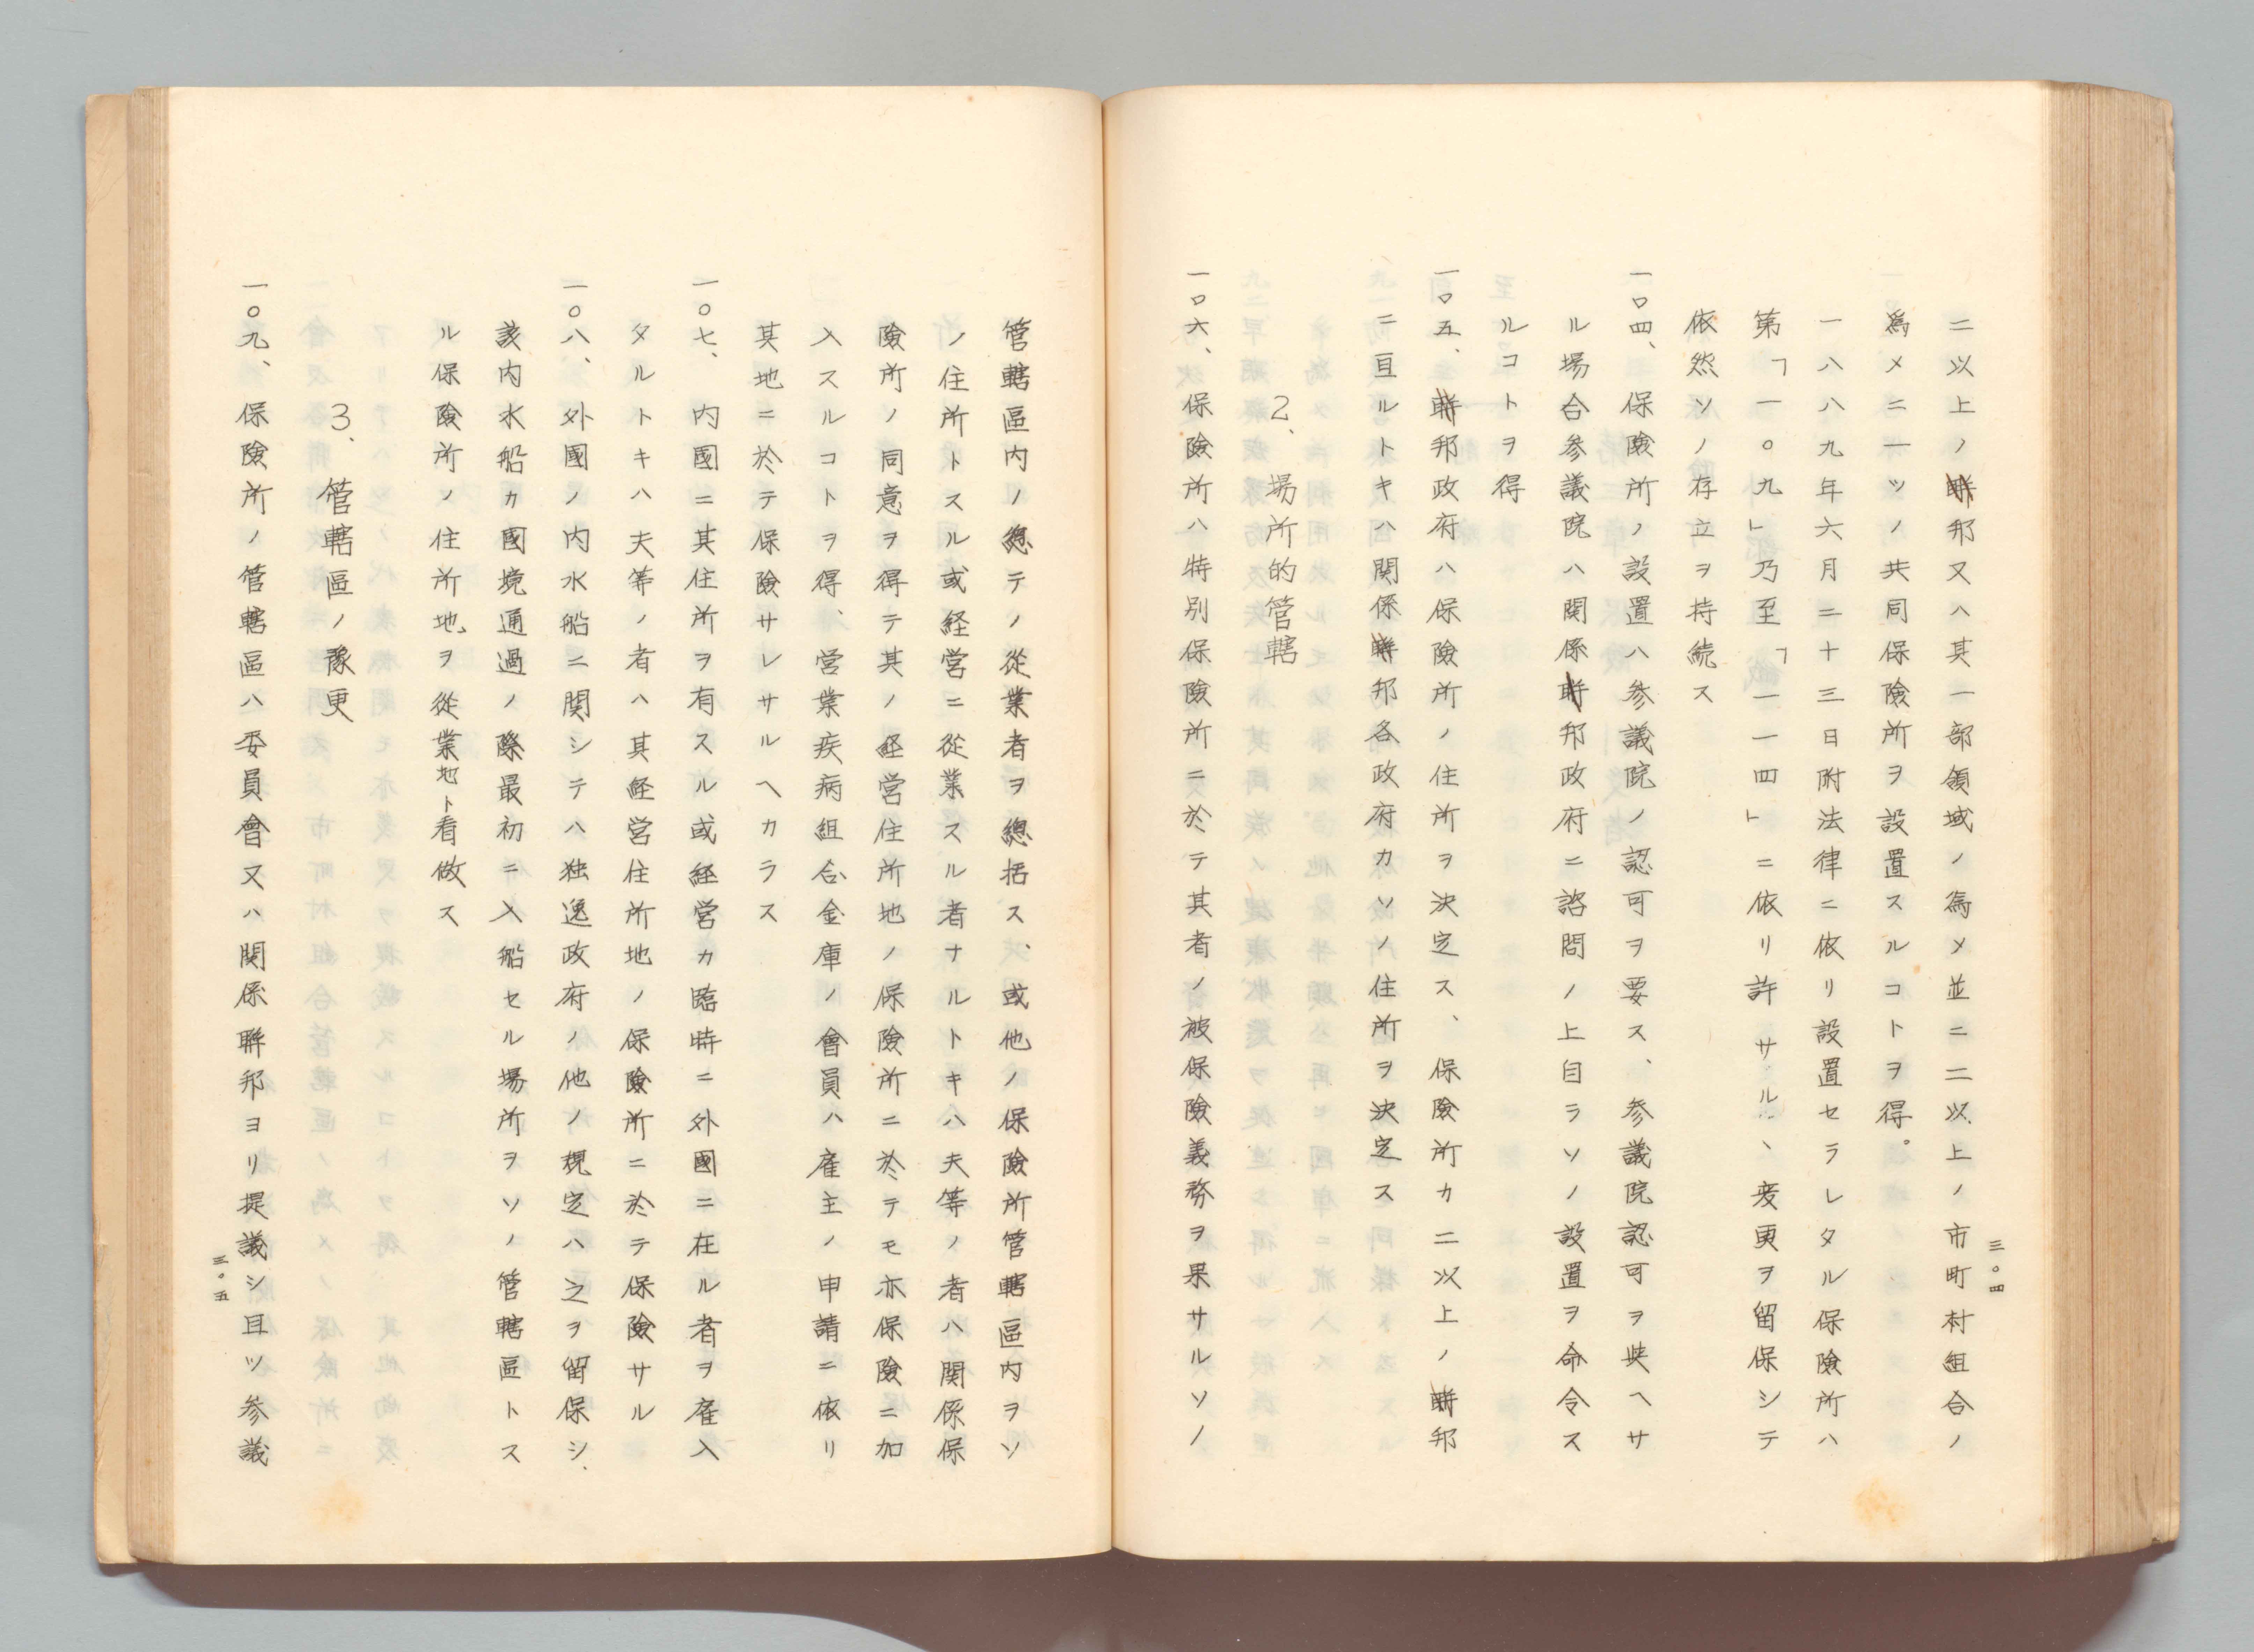 二以上ノ聯邦又ハ其一部領域ノ為メ並ニ二以上ノ市町村組合ノ
為メニ一ツノ共同保險所ヲ設置スルコトヲ得。
一八八九年六月二十三日附法律ニ依リ設置セラレタル保險所ハ
第「一〇九」乃至「一一四」ニ依リ許サルヽ変更ヲ留保シテ
依然ソノ存立ヲ持続ス
一〇四、保險所ノ設置ハ参議院ノ認可ヲ要ス、参議院認可ヲ與ヘサ
ル場合参議院ハ関係聯邦政府ニ諮問ノ上自ラソノ設置ヲ命令ス
ルコトヲ得
一〇五、聯邦政府ハ保險所ノ住所ヲ決定ス、保險所カ二以上ノ聯邦
ニ亘ルトキハ関係聯邦各政府カソノ住所ヲ決定ス
2、場所的管轄
一〇六、保險所ハ特別保險所ニ於テ其者ノ被保險義務ヲ果サルソノ
三〇四
管轄區内ノ總テノ從業者ヲ總括ス、或他ノ保險所管轄區内ヲソ
ノ住所トスル或経営ニ從業スル者ナルトキハ夫等ノ者ハ関係保
險所ノ同意ヲ得テ其ノ経営住所地ノ保險所ニ於テモ亦保險ニ加
入スルコトヲ得、営業疾病組合金庫ノ會員ハ雇主ノ申請ニ依リ
其地ニ於テ保險サレサルヘカラス
一〇七、内國ニ其住所ヲ有スル或経営カ臨時ニ外國ニ在ル者ヲ雇入
タルトキハ夫等ノ者ハ其経営住所地ノ保險所ニ於テ保險サル
一〇八、外國ノ内水船ニ関シテハ独逸政府ノ他ノ規定ハ之ヲ留保シ、
該内水船カ國境通過ノ際最初ニ入船セル場所ヲソノ管轄區トス
ル保險所ノ住所地ヲ從業地ト看做ス
3、管轄區ノ豫更
一〇九、保險所ノ管轄區ハ委員會又ハ関係聯邦ヨリ提議シ且ツ参議
三〇五